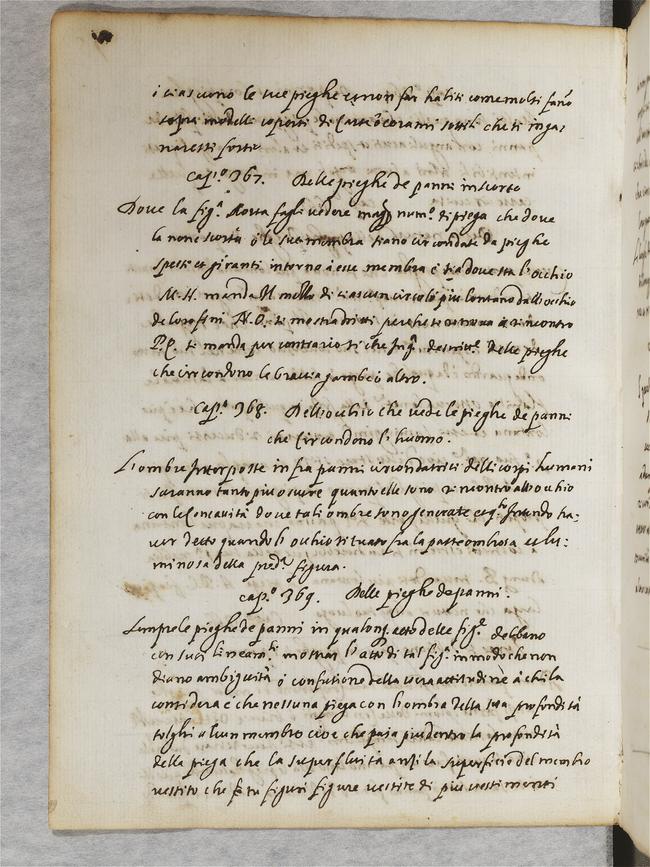 i ciascuno le sue pieghe et non far habiti come molti fano
sopra modelli coperti di Carte o corami sottili che ti ingan
naresti forte
cap.º 367. Delle pieghe de panni in scorto
Dove la fig.ª scorta fagli vedere mag.r num.º di piega che dove
la non è scorta o le sue membra siano circondate da pieghe
spesse et giranti intorno à esse membra è sia dove sta l'occhio
M.N. manda il mezzo di ciascun circolo più lontano dall'occhio
de loro fini N.O. ti mostra diritti perche te si trova à rincontro
P.Q. ti manda per contrario si che
Delle pieghe
che circondono le braccia gambe ò altro.
cap.º 368. Dell'occhio che vede le pieghe de panni
che Circondono l'huomo.
L'ombre Interposte infra panni circondatrici delli corpi humani
saranno tanto più oscure quanto elle sono rincontro all'occhio
con le Concavità dove tali ombre sono generate et q.to Intendo ha=
ver detto quando l'occhio è situato fra la parte ombrosa et lu=
minosa della pred.ª figura.
cap.º 369. Delle pieghe de panni.
Sempre le pieghe de panni in qualonq. atto delle fig.e debbano
con suoi lineam.ti mostrar l'atto di tal fig.ª in modo che non
diano ambiguità ò confusione della vera attitudine à chi la
considera è che nessuna piega con l'ombra della sua profondità
tolghi alcun membro cioè che paia più dentro la profondità
della piega che la superfluità anzi la superficie del membro
vestito che se tu figuri figure vestite di più vestimenti